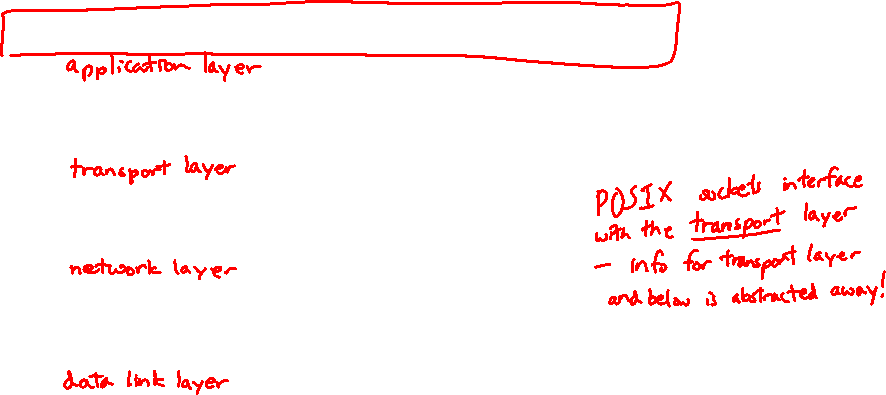 application layer
transport layer
network layer
data link layer
POSIX sockets interface
with the transport layer
- info for transport layer
and below is abstracted away!